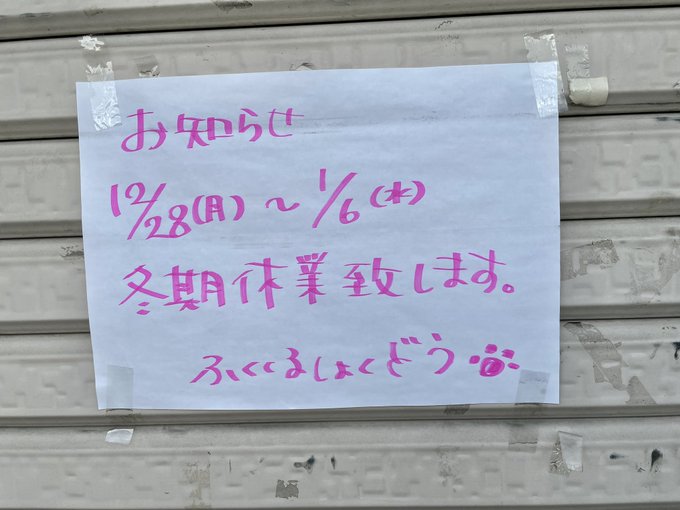 お知らせ
12/28(月)～1/6(水)
冬期休業致します。
ふくくるしょくどう